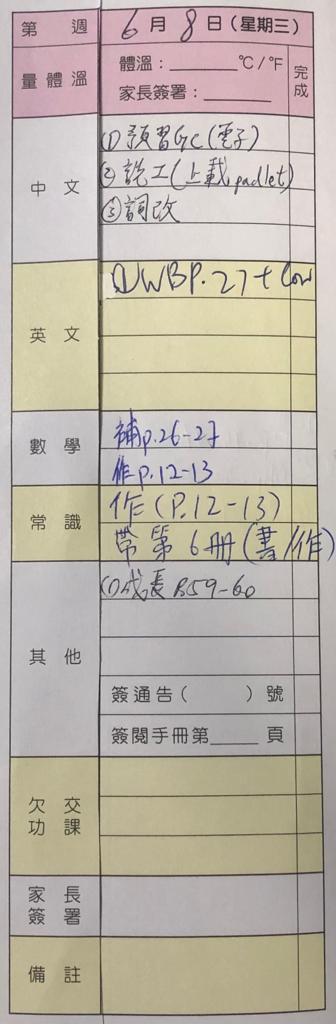 第 週 6月8日(星期三)
量體溫 體溫:______°C/°F 完成
家長簽署:______
中文 (1)預習6C(電子)
(2)說工(上載padlet)
(3)詞改
英文 (1)WBP.27+Corr
數學 補p.26-27
作p.12-13
常識 作(P.12-13)
帶第6冊(書/作)
其他 (1)成長 P.59-60
簽通告( )號
簽閱手冊第____頁
欠交功課
家長簽署
備註